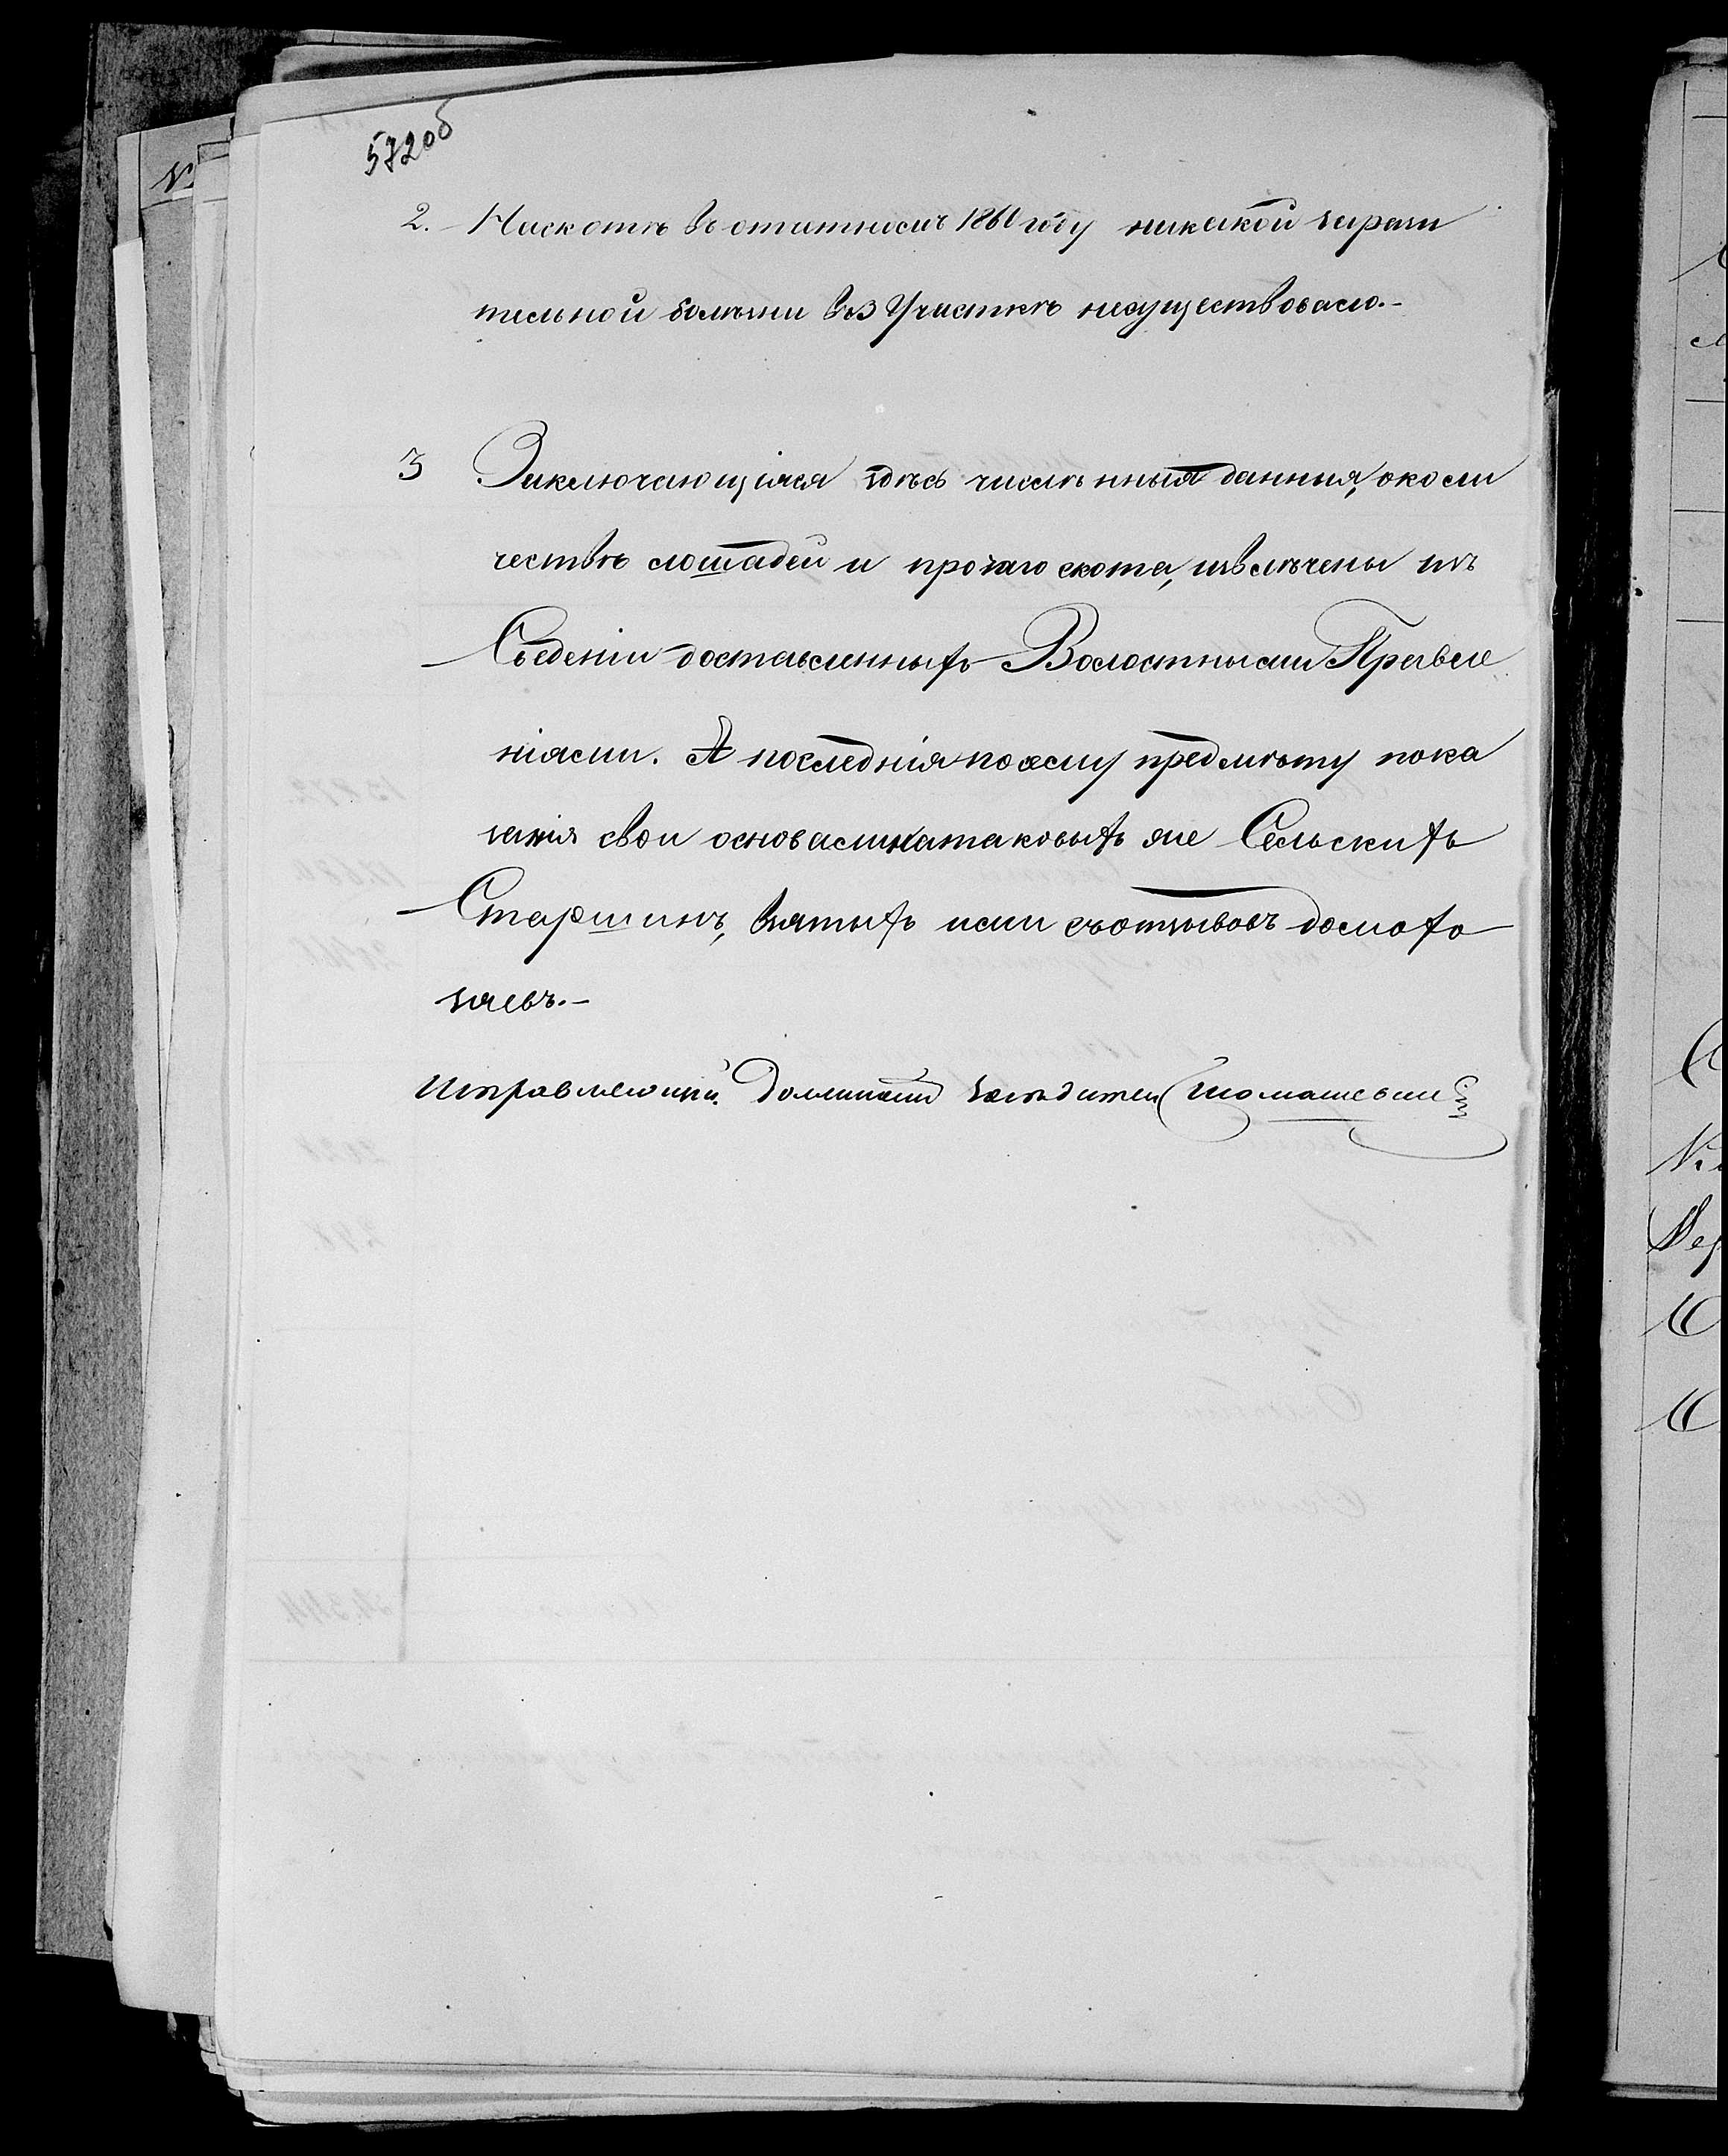 572об
2. На скотѣ въ отчетномъ 1861 году никакой зарази
тельной болѣзни въ 3 Участкѣ несуществовало.-
3 Заключающіяся здѣсь численныя данныя, околи
чествѣ лошадей и прочаго скота, извлѣчены изъ
Сведеніи доставленныхъ Волостными Правле
ніями. А последнія посему предмѣту пока
занія свои основали натаковыхъ же Сельскихъ
Старшинъ, взятыхъ ими съотзывовъ домохо
зяевъ.-